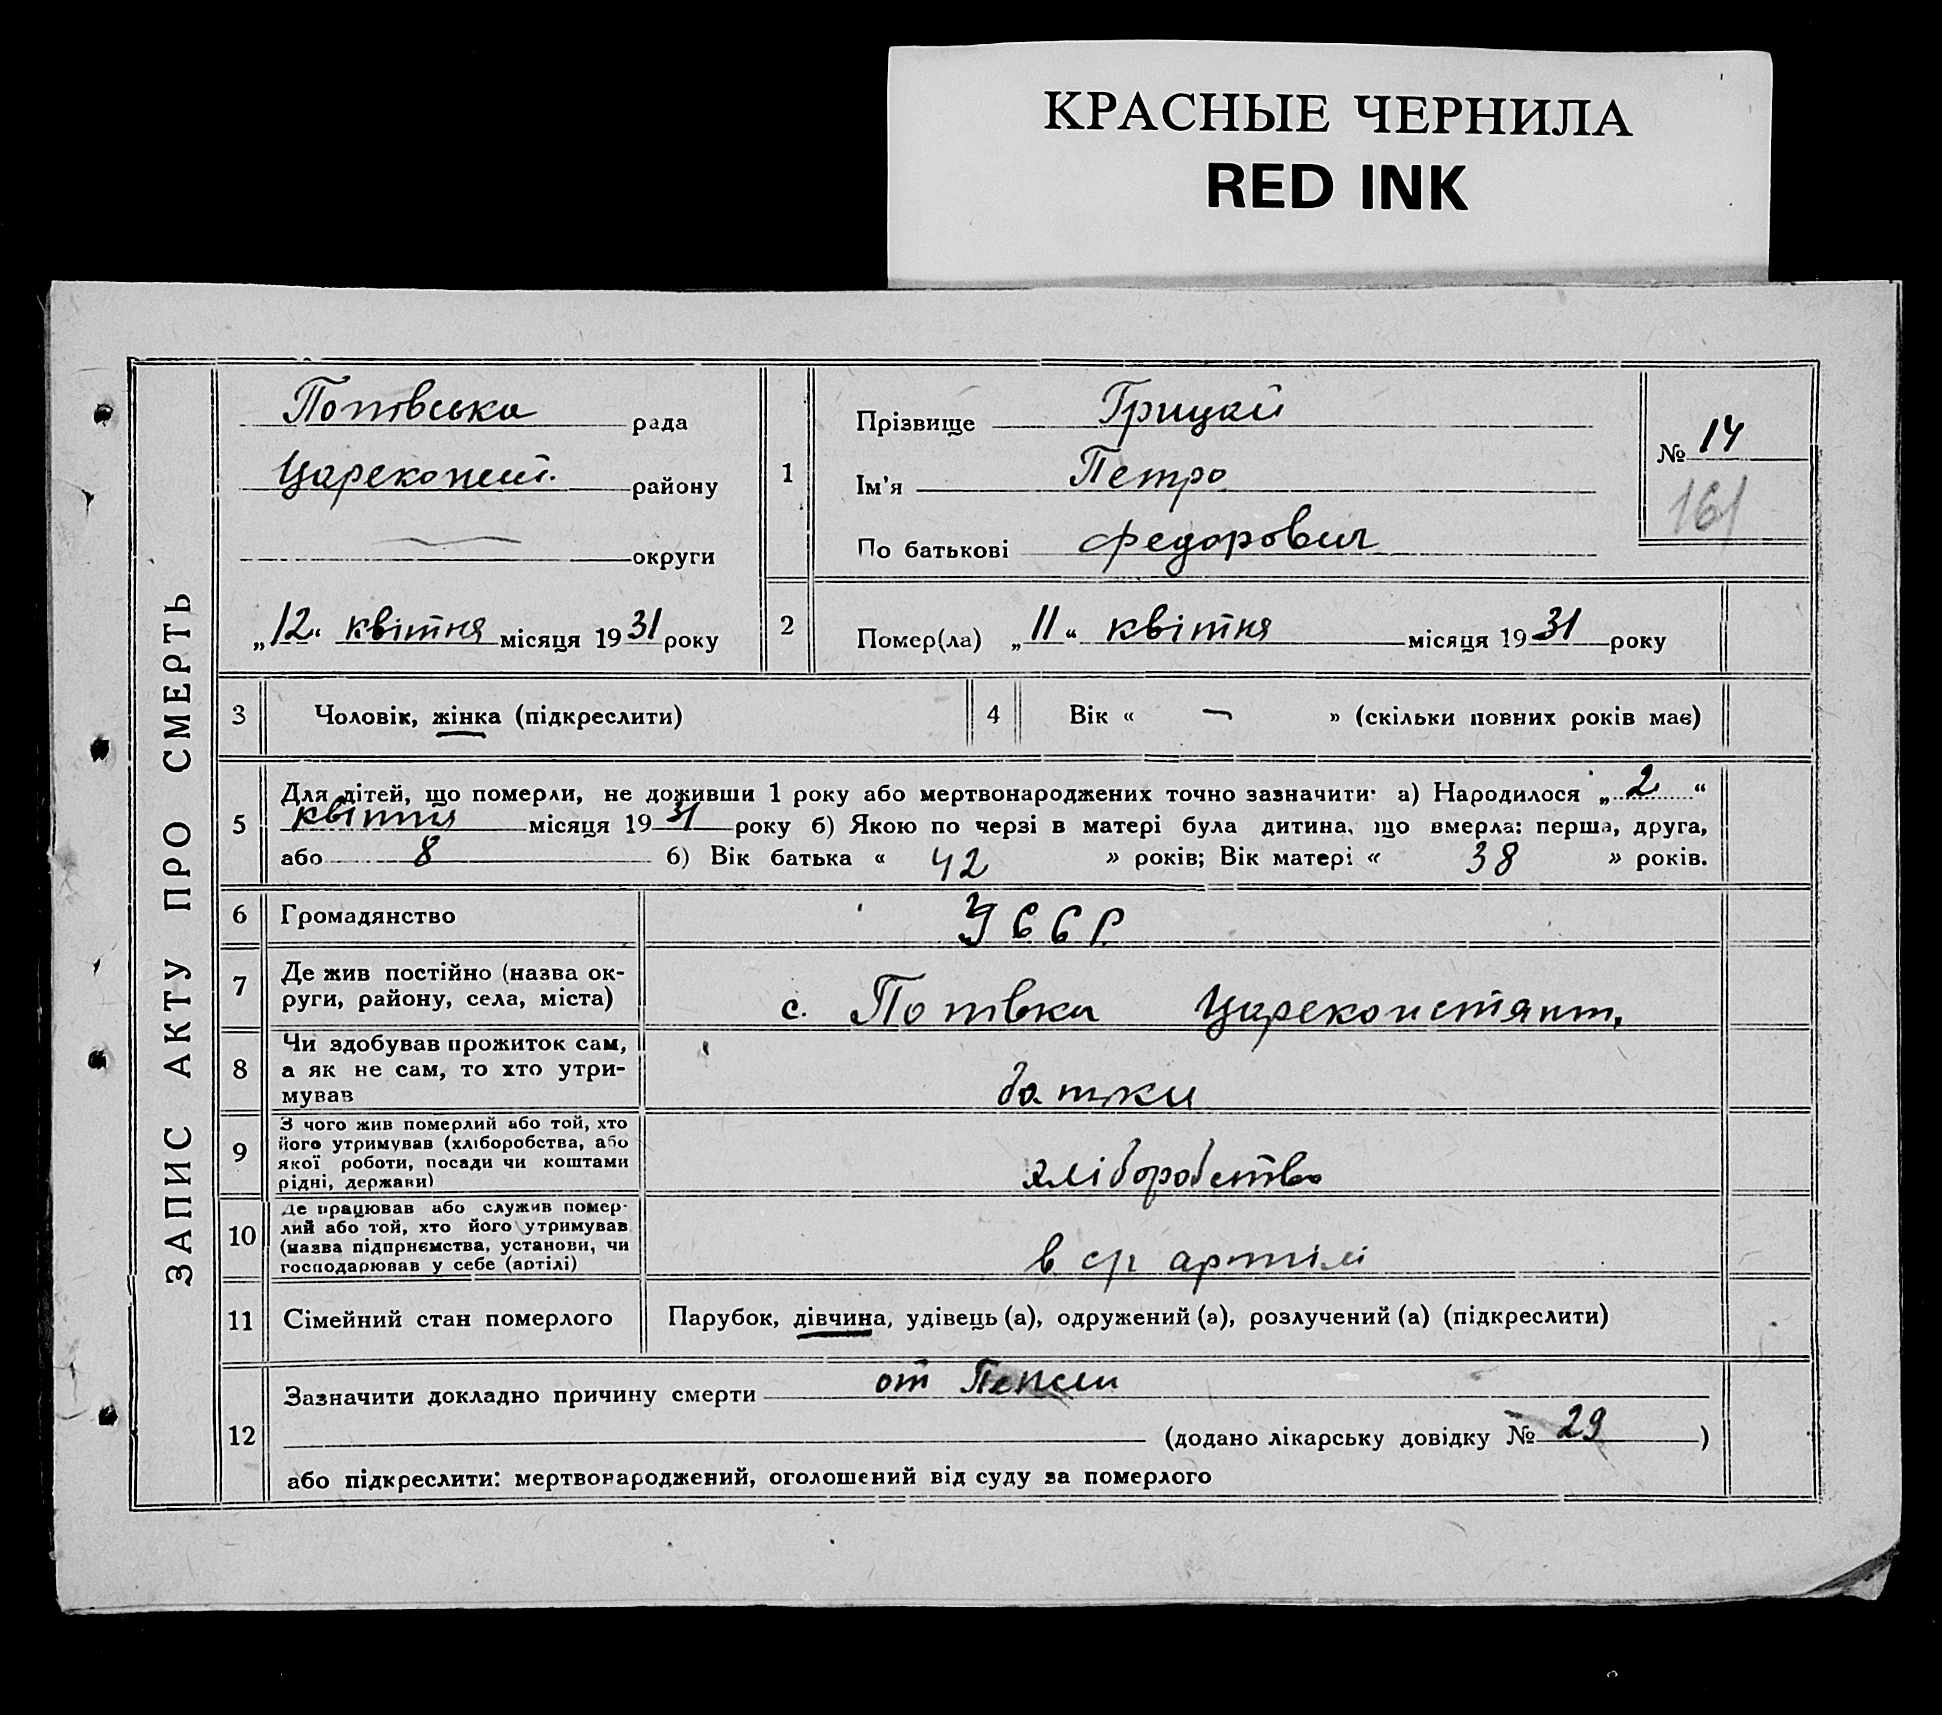 КРАСНЫЕ ЧЕРНИЛА
RED INK
ЗАПИС АКТУ ПРО СМЕРТЬ
Попівська рада
району
округи
„12“ квітня місяця 1931 року
1
Прізвище Грицай
Ім'я Петро
По батькові Федорович
№ 14
161
2
Помер(ла) „11“ квітня місяця 1931 року
3
Чоловік, жінка (підкреслити)
4
Вік « — » (скільки повних років має)
5
Для дітей, що померли, не доживши 1 року або мертвонароджених точно зазначити: а) Народилося „2“
квітня місяця 1931 року б) Якою по черзі в матері була дитина, що вмерла: перша, друга,
або 8 б) Вік батька « 42 » років; Вік матері « 38 » років.
6
Громадянство УССР
7
Де жив постійно (назва ок-
руги, району, села, міста)
с. Попівка Цареконстянт.
8
Чи здобував прожиток сам,
а як не сам, то хто утри-
мував
батьки
9
З чого жив померлий або той, хто
його утримував (хліборобства, або
якої роботи, посади чи коштами
рідні, держави)
хліборобство
10
Де працював або служив помер-
лий або той, хто його утримував
(назва підприємства, установи, чи
господарював у себе (артілі)
в с/г артілі
11
Сімейний стан померлого
Парубок, дівчина, удівець (а), одружений (а), розлучений (а) (підкреслити)
12
Зазначити докладно причину смерти от
(додано лікарську довідку № 29)
або підкреслити: мертвонароджений, оголошений від суду за померлого